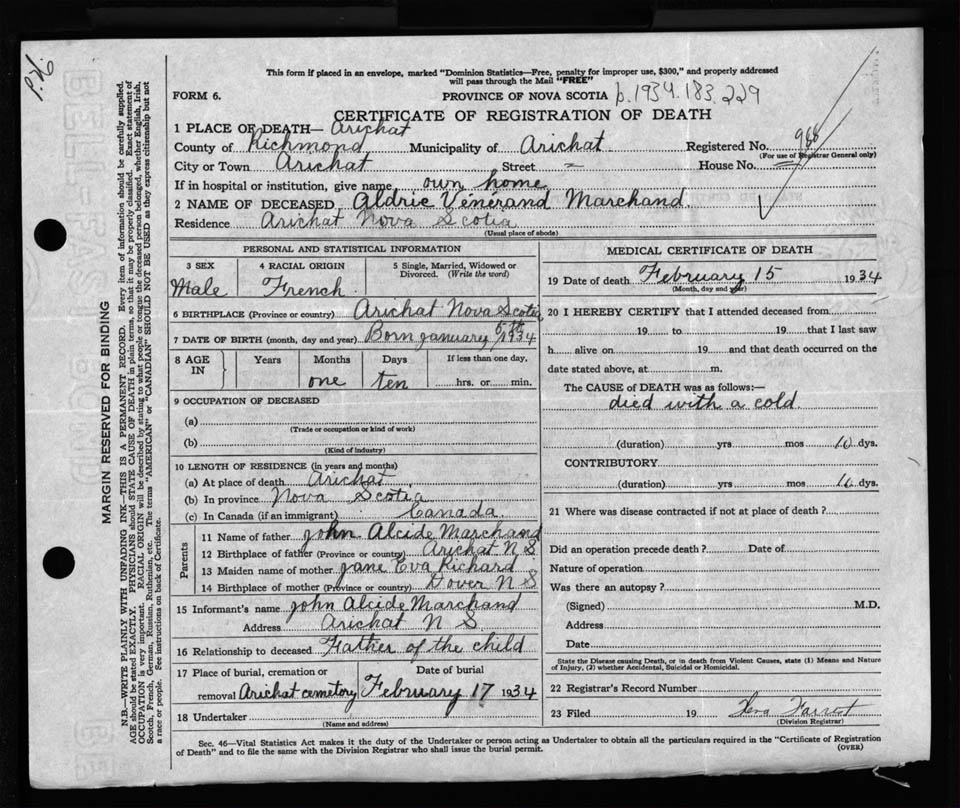 P.N.
This form if placed in an envelope, marked "Dominion Statistics—Free, penalty for improper use, $300," and properly addressed
will pass through the Mail "FREE"
FORM 6.
PROVINCE OF NOVA SCOTIA b.1934.183.229
CERTIFICATE OF REGISTRATION OF DEATH
1 PLACE OF DEATH— Arichat
County of Richmond Municipality of Arichat Registered No. 988
(For use of Registrar General only)
City or Town Arichat Street = House No. =
If in hospital or institution, give name own home
2 NAME OF DECEASED Aldric Venerand Marchand.
Residence Arichat Nova Scotia
(Usual place of abode)
PERSONAL AND STATISTICAL INFORMATION
3 SEX 4 RACIAL ORIGIN 5 Single, Married, Widowed or
Divorced. (Write the word)
Male French
6 BIRTHPLACE (Province or country) Arichat Nova Scotia
7 DATE OF BIRTH (month, day and year) Born January 5th 1934
8 AGE IN Years Months Days If less than one day,
one ten hrs. or min.
9 OCCUPATION OF DECEASED
(a)
(Trade or occupation or kind of work)
(b)
(Kind of industry)
10 LENGTH OF RESIDENCE (in years and months)
(a) At place of death Arichat
(b) In province Nova Scotia
(c) In Canada (if an immigrant) Canada
Parents
11 Name of father John Alcide Marchand
12 Birthplace of father (Province or country) Arichat N S
13 Maiden name of mother Jane Eva Richard
14 Birthplace of mother (Province or country) Dover N S
15 Informant's name John Alcide Marchand
Address Arichat N S
16 Relationship to deceased Father of the child
17 Place of burial, cremation or Date of burial
removal Arichat cemetory February 17 1934
18 Undertaker
(Name and address)
MEDICAL CERTIFICATE OF DEATH
19 Date of death February 15 1934
(Month, day and year)
20 I HEREBY CERTIFY that I attended deceased from
19 to 19 that I last saw
h alive on 19 and that death occurred on the
date stated above, at m.
The CAUSE of DEATH was as follows:—
died with a cold
(duration) yrs mos 10 dys.
CONTRIBUTORY
(duration) yrs mos 10 dys.
21 Where was disease contracted if not at place of death?
Did an operation precede death? Date of
Nature of operation
Was there an autopsy?
(Signed) M.D.
Address
Date
State the Disease causing Death, or in death from Violent Causes, state (1) Means and Nature
of Injury, (2) whether Accidental, Suicidal or Homicidal.
22 Registrar's Record Number
23 Filed 19
(Division Registrar)
Sec. 46—Vital Statistics Act makes it the duty of the Undertaker or person acting as Undertaker to obtain all the particulars required in the "Certificate of Registration
of Death" and to file the same with the Division Registrar who shall issue the burial permit. (OVER)
MARGIN RESERVED FOR BINDING
N.B.—WRITE PLAINLY WITH UNFADING INK—THIS IS A PERMANENT RECORD. Every item of information should be carefully supplied.
AGE should be stated EXACTLY. PHYSICIANS should STATE CAUSE OF DEATH in plain terms, so that it may be properly classified. Exact statement of
OCCUPATION is very important. RACIAL ORIGIN will be described by stating to what people or tongue the deceased person belonged, whether English, Irish,
Scotch, French, German, Russian, Ruthenian, etc. The terms "AMERICAN" or "CANADIAN" SHOULD NOT BE USED as they express citizenship but not
a race or people. See instructions on back of Certificate.